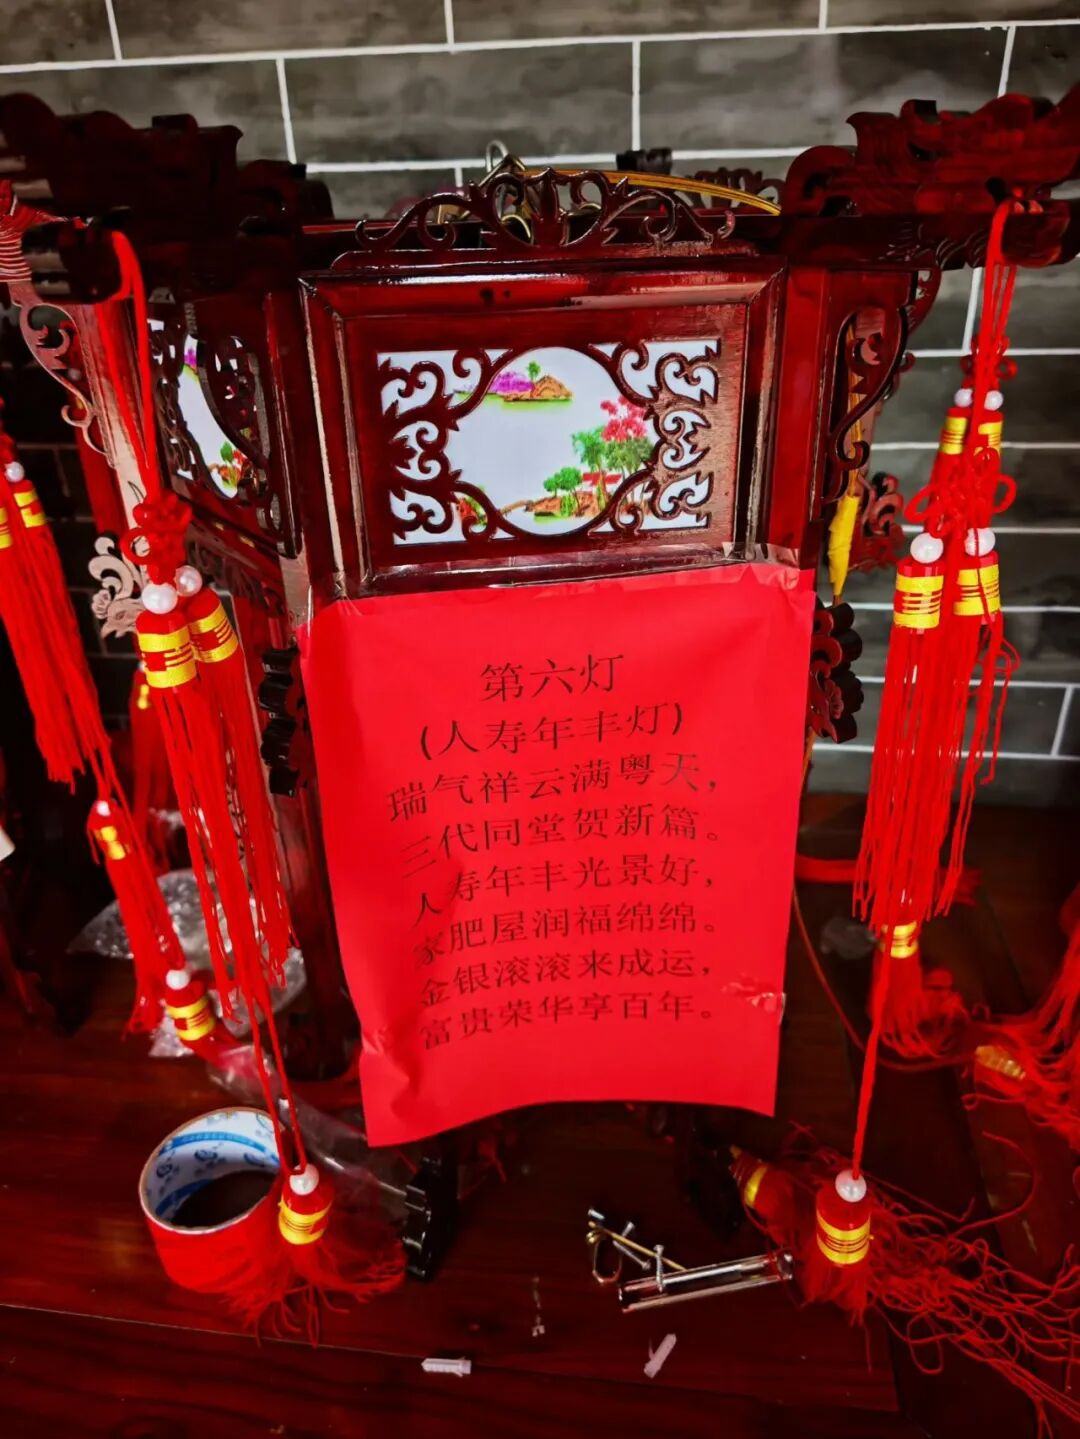 第六灯
(人寿年丰灯)
瑞气祥云满粤天，
三代同堂贺新篇。
人寿年丰光景好，
家肥屋润福绵绵。
金银滚滚来成运，
富贵荣华享百年。